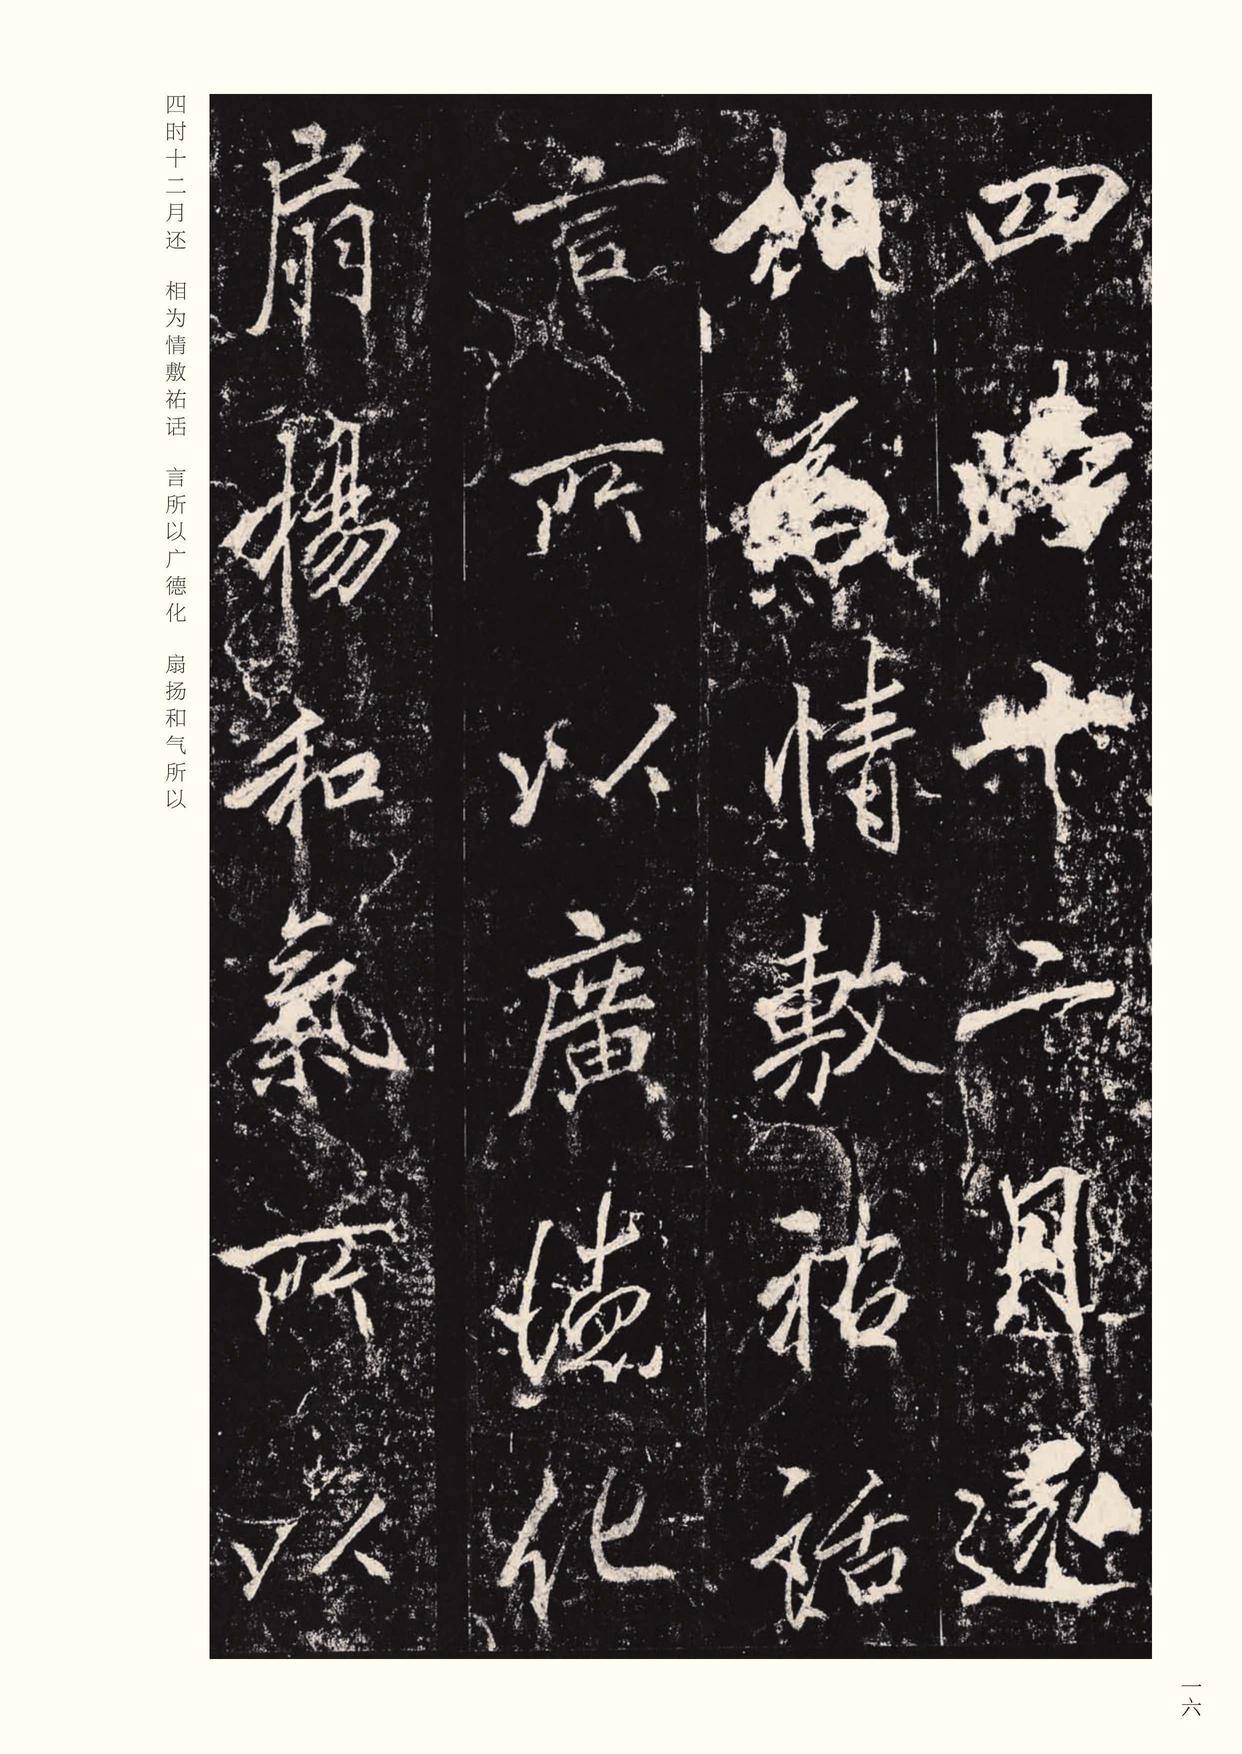 四時十二月還
相為情敷祐話
言所以廣德化
扇揚和氣所以
四时十二月还　相为情敷祐话　言所以广德化　扇扬和气所以
一六